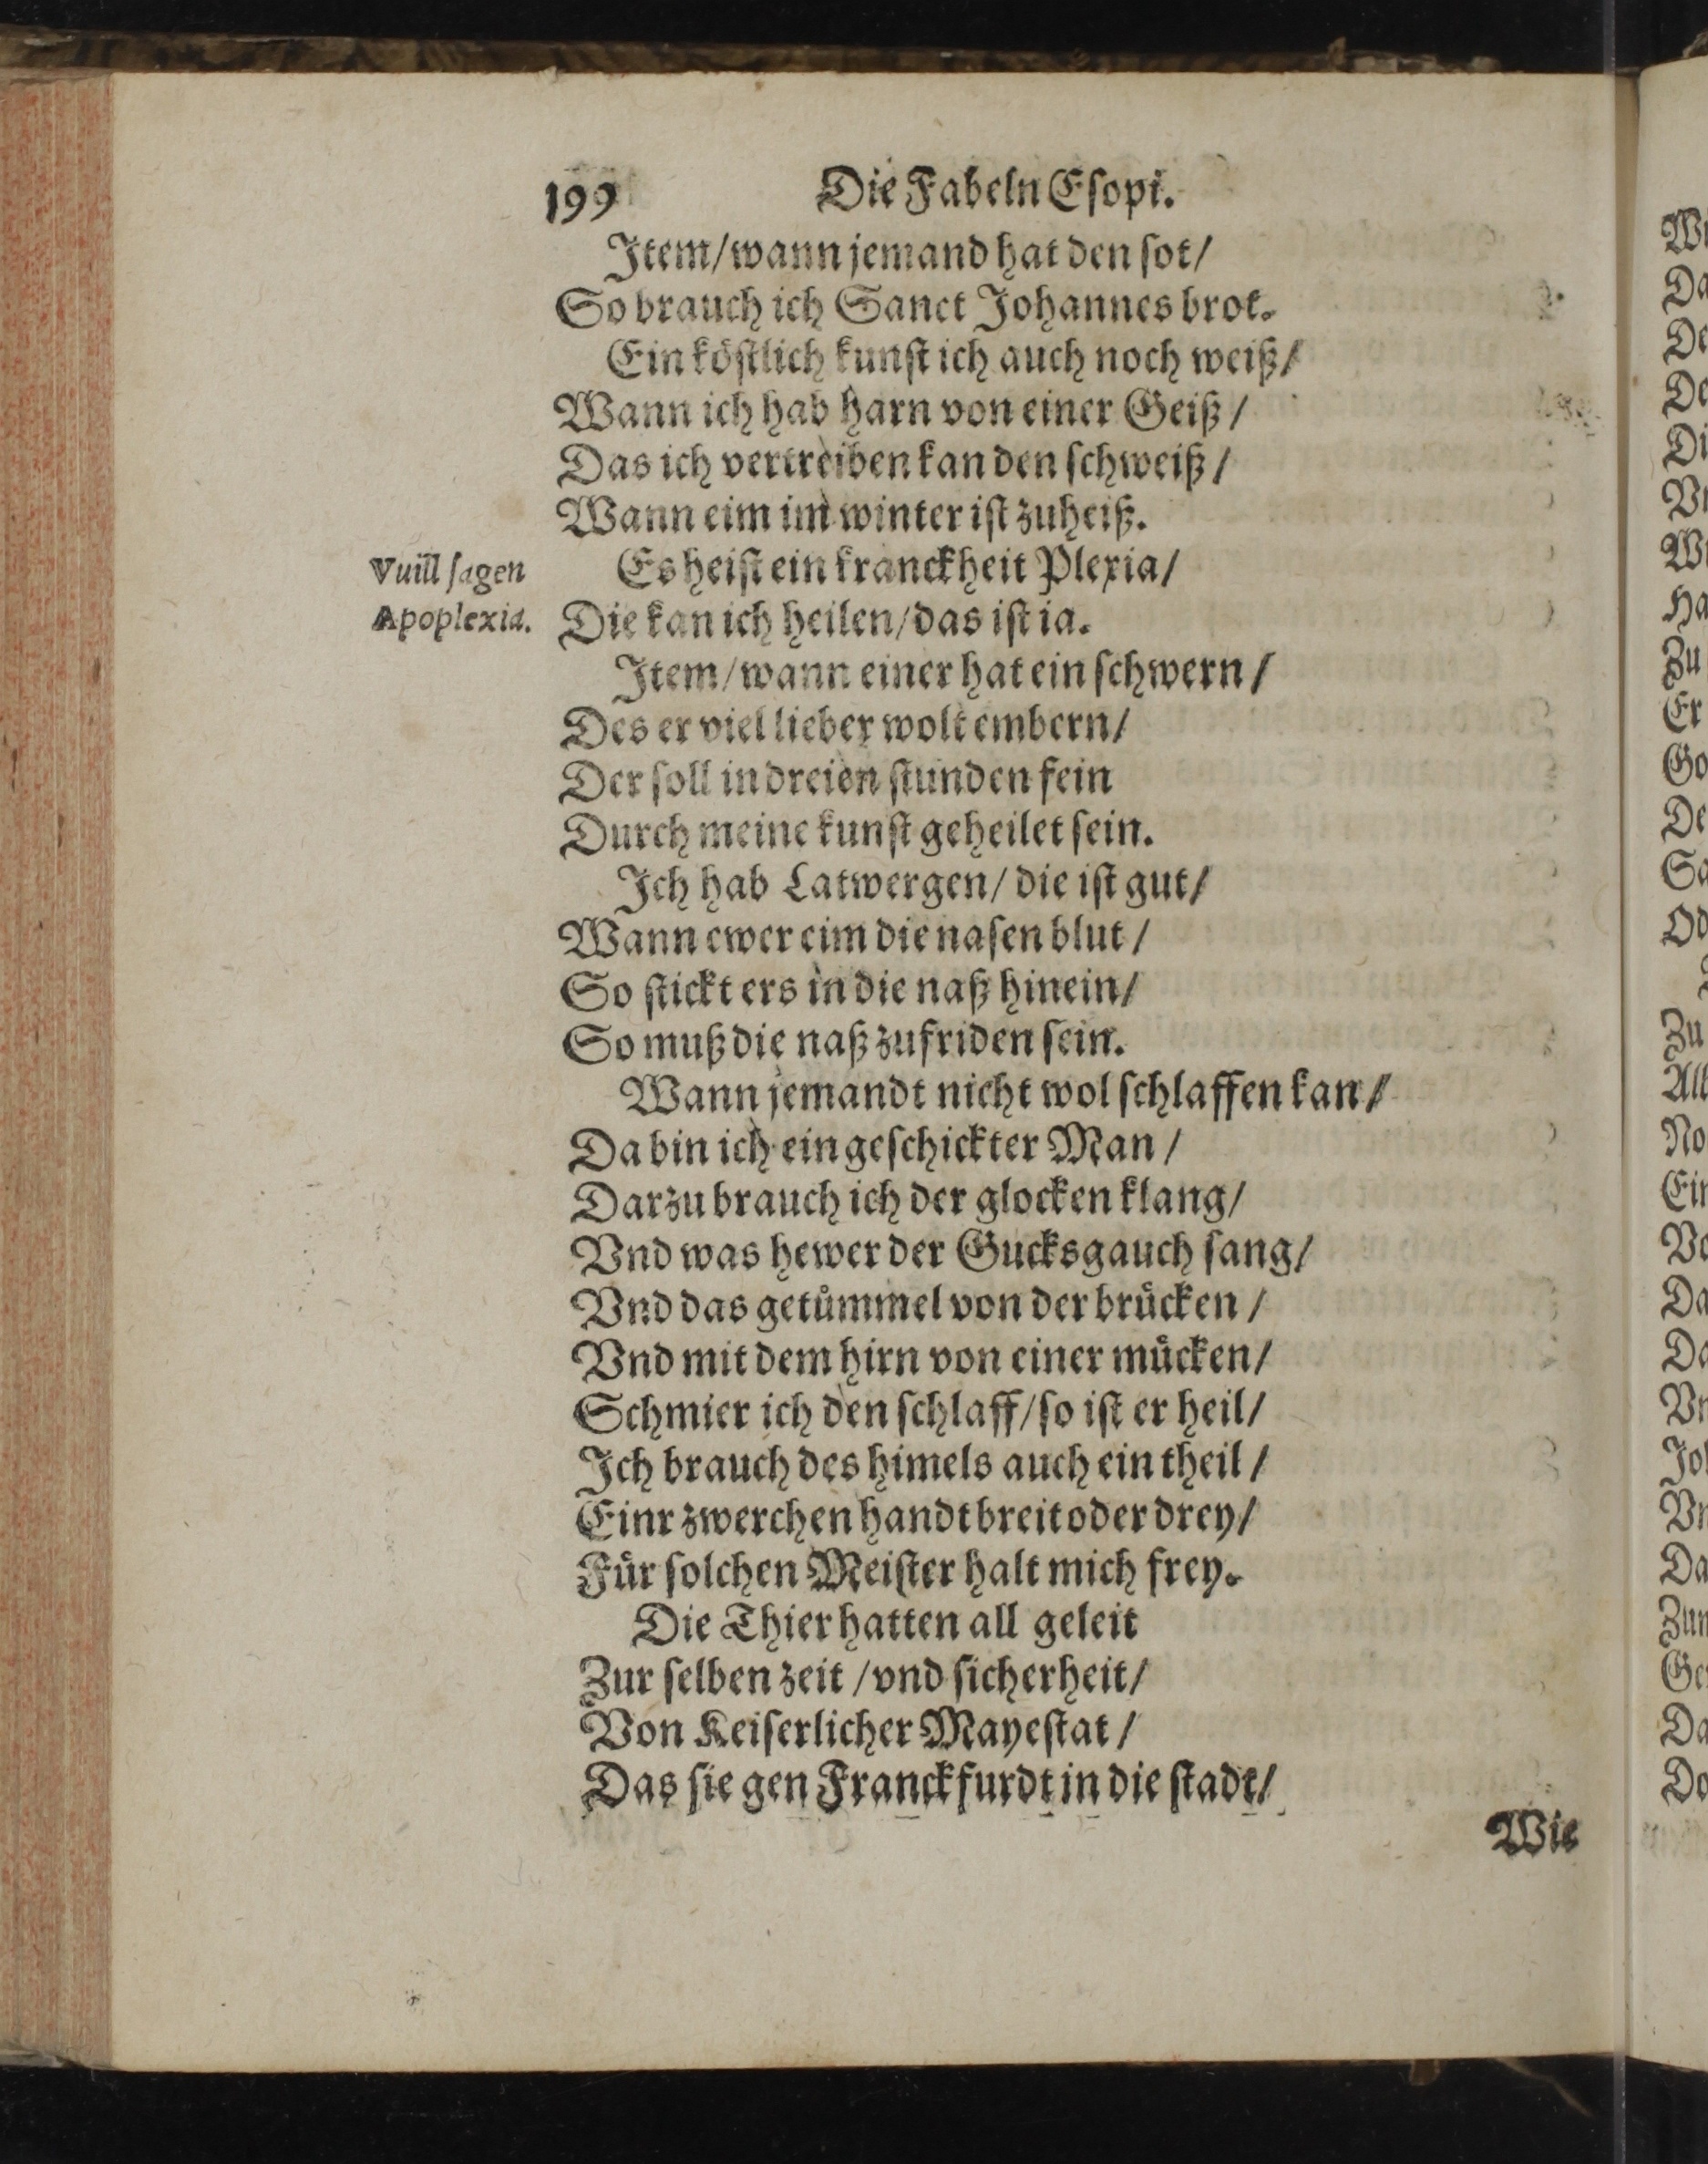 199 Die Fabeln Eſopi.
Item/wann jemand hat den ſot/
So brauch ich Sanct Johannes brot.
Ein köſtlich kunſt ich auch noch weiß/
Wann ich hab harn von einer Geiß/
Das ich vertreiben kan den ſchweiß/
Wann eim im winter iſt zuheiß.
Vuill ſagen Es heiſt ein kranckheit Plexia/
Apoplexia. Die kan ich heilen/das iſt ia.
Item/wann einer hat ein ſchwern/
Des er viel lieber wolt embern/
Der ſoll in dreien ſtunden fein
Durch meine kunſt geheilet ſein.
Ich hab Latwergen/die iſt gut/
Wann ewer eim die naſen blut/
So ſtickt ers in die naß hinein/
So muß die naß zufriden ſein.
Wann jemandt nicht wol ſchlaffen kan/
Da bin ich ein geſchickter Man/
Darzu brauch ich der glocken klang/
Vnd was hewer der Gucksgauch ſang/
Vnd das getuͤmmel von der bruͤcken/
Vnd mit dem hirn von einer muͤcken/
Schmier ich den ſchlaff/ſo iſt er heil/
Ich brauch des himels auch ein theil/
Einr zwerchen handt breit oder drey/
Fuͤr ſolchen Meiſter halt mich frey.
Die Thier hatten all geleit
Zur ſelben zeit/vnd ſicherheit/
Von Keiſerlicher Mayeſtat/
Das ſie gen Franckfurdt in die ſtadt/
Wie